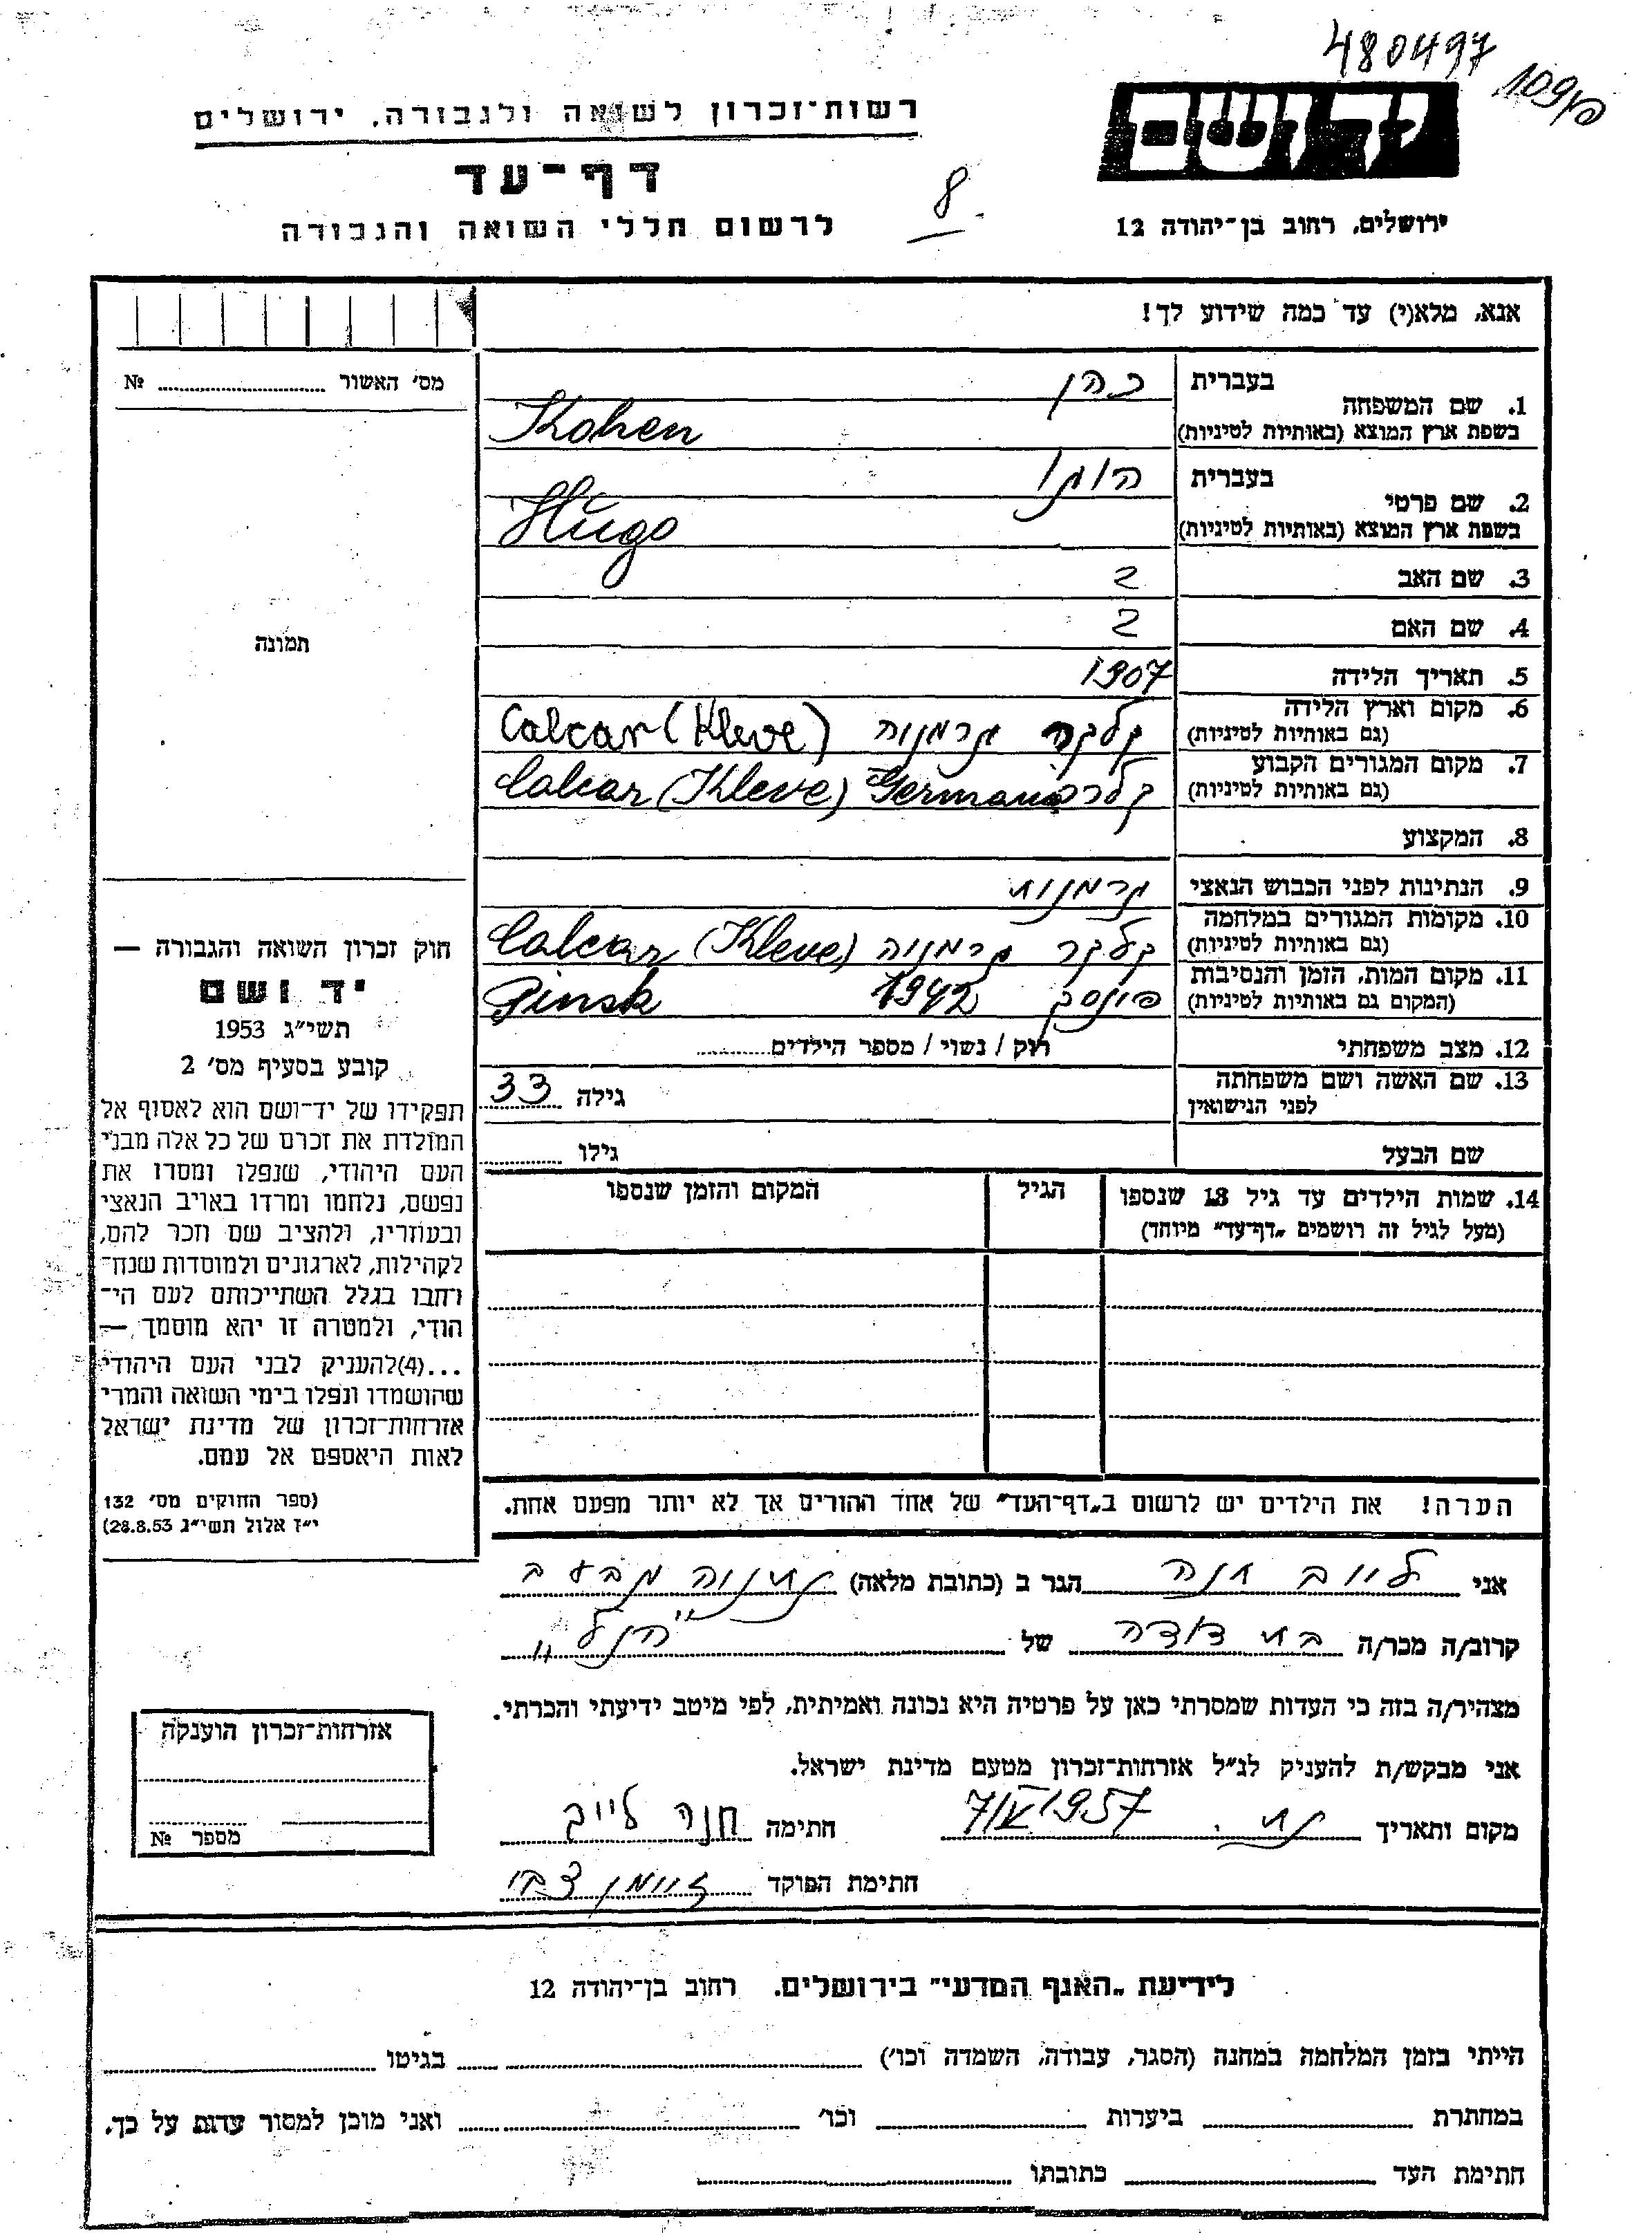 480497
109פ
רשות־זכרון לשואה ולגבורה, ירושלים
יד ושם
דף־עד
8
לרשום חללי השואה והגבורה
ירושלים, רחוב בן־יהודה 12
אנא, מלא(י) עד כמה שידוע לך!
מס׳ האשור № ............
1. שם המשפחה
בעברית כהן
בשפת ארץ המוצא (באותיות לטיניות) Kohen
2. שם פרטי
בעברית הוגו
בשפת ארץ המוצא (באותיות לטיניות) Hugo
3. שם האב ?
4. שם האם ?
תמונה
5. תאריך הלידה 1907
6. מקום וארץ הלידה
(גם באותיות לטיניות) קלקר גרמניה Calcar (Kleve)
7. מקום המגורים הקבוע
(גם באותיות לטיניות) קלקר Calcar (Kleve) Germania
8. המקצוע
9. הנתינות לפני הכבוש הנאצי גרמנית
10. מקומות המגורים במלחמה
(גם באותיות לטיניות) קלקר גרמניה Calcar (Kleve)
11. מקום המות, הזמן והנסיבות
(המקום גם באותיות לטיניות) פינסק 1942 Pinsk
12. מצב משפחתי רוק / נשוי / מספר הילדים............
13. שם האשה ושם משפחתה
לפני הנישואין גילה 33
שם הבעל גילו ............
14. שמות הילדים עד גיל 18 שנספו
(מעל לגיל זה רושמים „דף־עד״ מיוחד)
הגיל
המקום והזמן שנספו
הערה! את הילדים יש לרשום ב„דף־העד״ של אחד ההורים אך לא יותר מפעם אחת.
חוק זכרון השואה והגבורה —
יד ושם
תשי״ג 1953
קובע בסעיף מס׳ 2
תפקידו של יד־ושם הוא לאסוף אל
המולדת את זכרם של כל אלה מבני
העם היהודי, שנפלו ומסרו את
נפשם, נלחמו ומרדו באויב הנאצי
ובעוזריו, ולהציב שם וזכר להם,
לקהילות, לארגונים ולמוסדות שנח־
רבו בגלל השתייכותם לעם הי־
הודי, ולמטרה זו יהא מוסמך —
...(4)להעניק לבני העם היהודי
שהושמדו ונפלו בימי השואה והמרי
אזרחות־זכרון של מדינת ישראל
לאות היאספם אל עמם.
(ספר החוקים מס׳ 132
י״ז אלול תשי״ג 28.8.53)
אני לייב חנה הגר ב (כתובת מלאה) נתניה
קרוב/ה מכר/ה בת דודה של הנ״ל
מצהיר/ה בזה כי העדות שמסרתי כאן על פרטיה היא נכונה ואמיתית, לפי מיטב ידיעתי והכרתי.
אני מבקש/ת להעניק לנ״ל אזרחות־זכרון מטעם מדינת ישראל.
מקום ותאריך נת. 7/V 1957 חתימה חנה לייב
חתימת הפוקד זיימן צבי
אזרחות־זכרון הוענקה
מספר №
לידיעת „האגף המדעי״ בירושלים. רחוב בן־יהודה 12
הייתי בזמן המלחמה במחנה (הסגר, עבודה, השמדה וכו׳) ............ בגיטו ............
במחתרת ............ ביערות ............ וכו׳ ............ ואני מוכן למסור עדות על כך.
חתימת העד ............ כתובתו ............